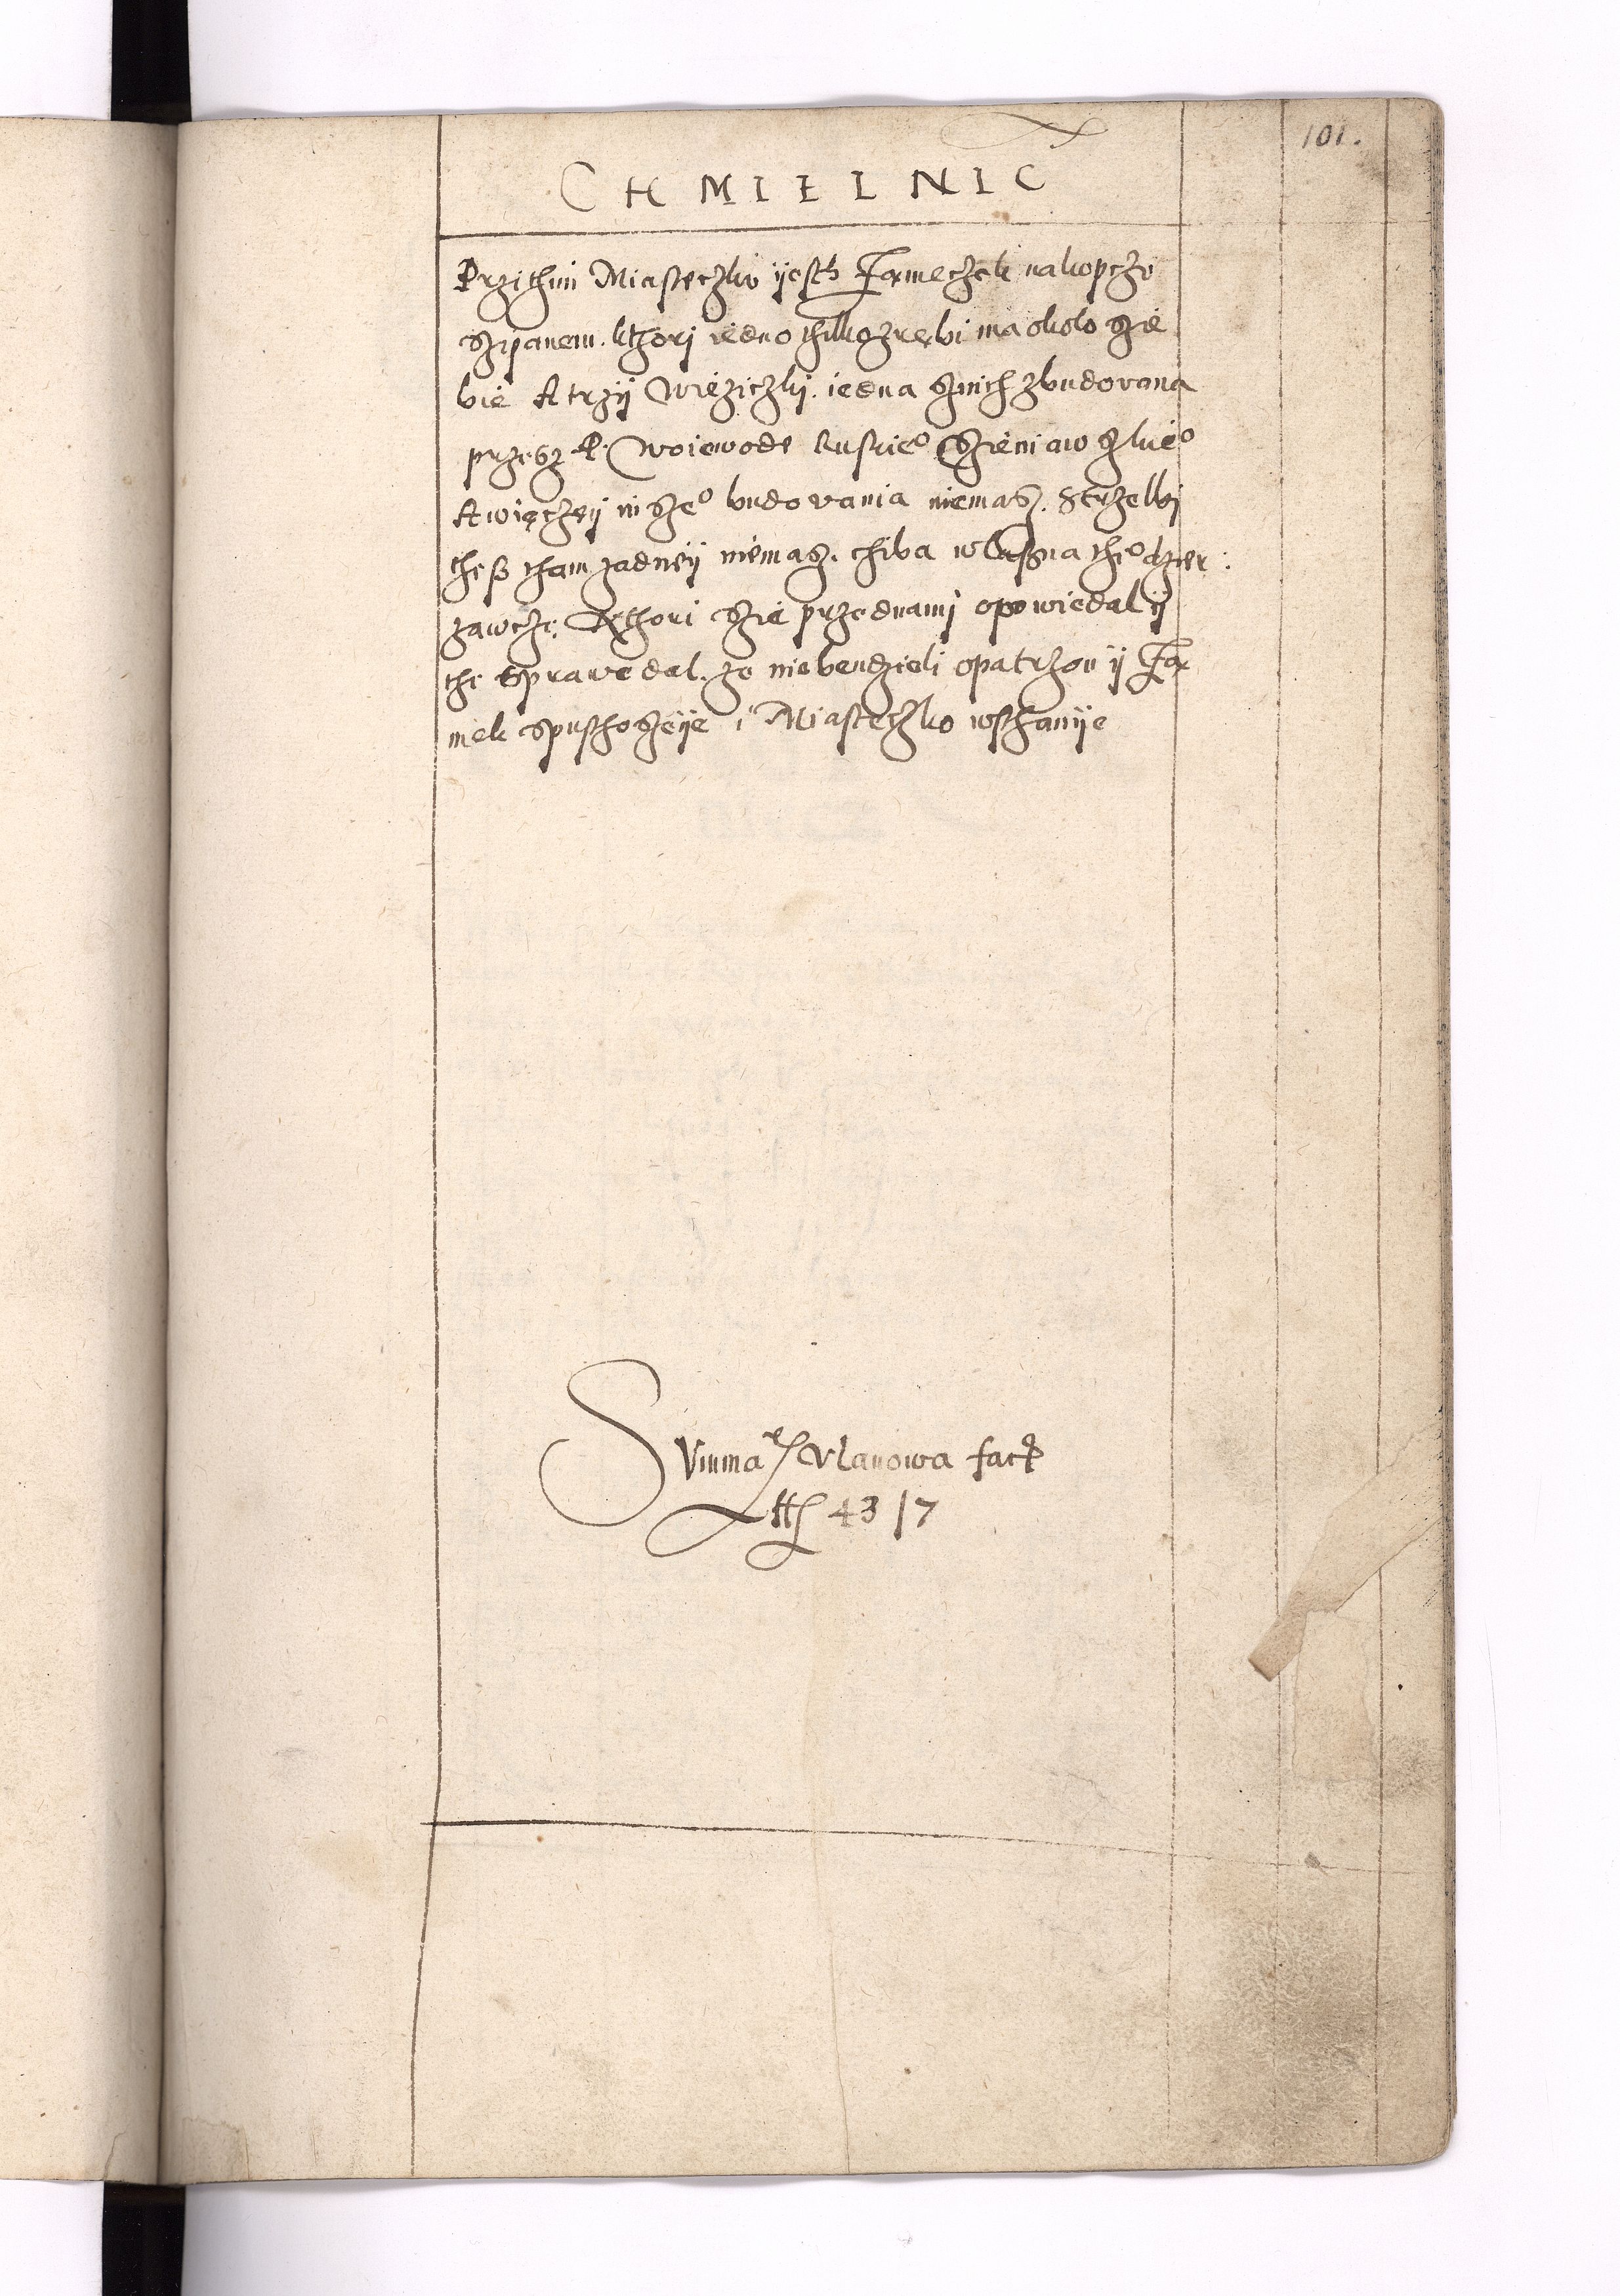 101.
CHMIELNIC
Przithim Miasteczku yesth Zameczek nakopcze
Szipanem. kthori iedno thilko zrębi ma okolo szie
bie A trzÿ Wieziczki. iedna sznich zbudovana
przesz P. Woiewode Ruskieo Szieniawszkieo
A więczeÿ niszceo budovania niemasz. Strzelbi
thesz tham zadneÿ niemasz. chiba wlasna theo dzier:
zawcze. Kthori szie przednami opowiedal ÿ
the sprawe dal. ze niebendzieli opatrzon ÿ Za
mek spusthoszeÿe i Miasteczko wsthanÿe
Summa Vlanowa fact
43 17